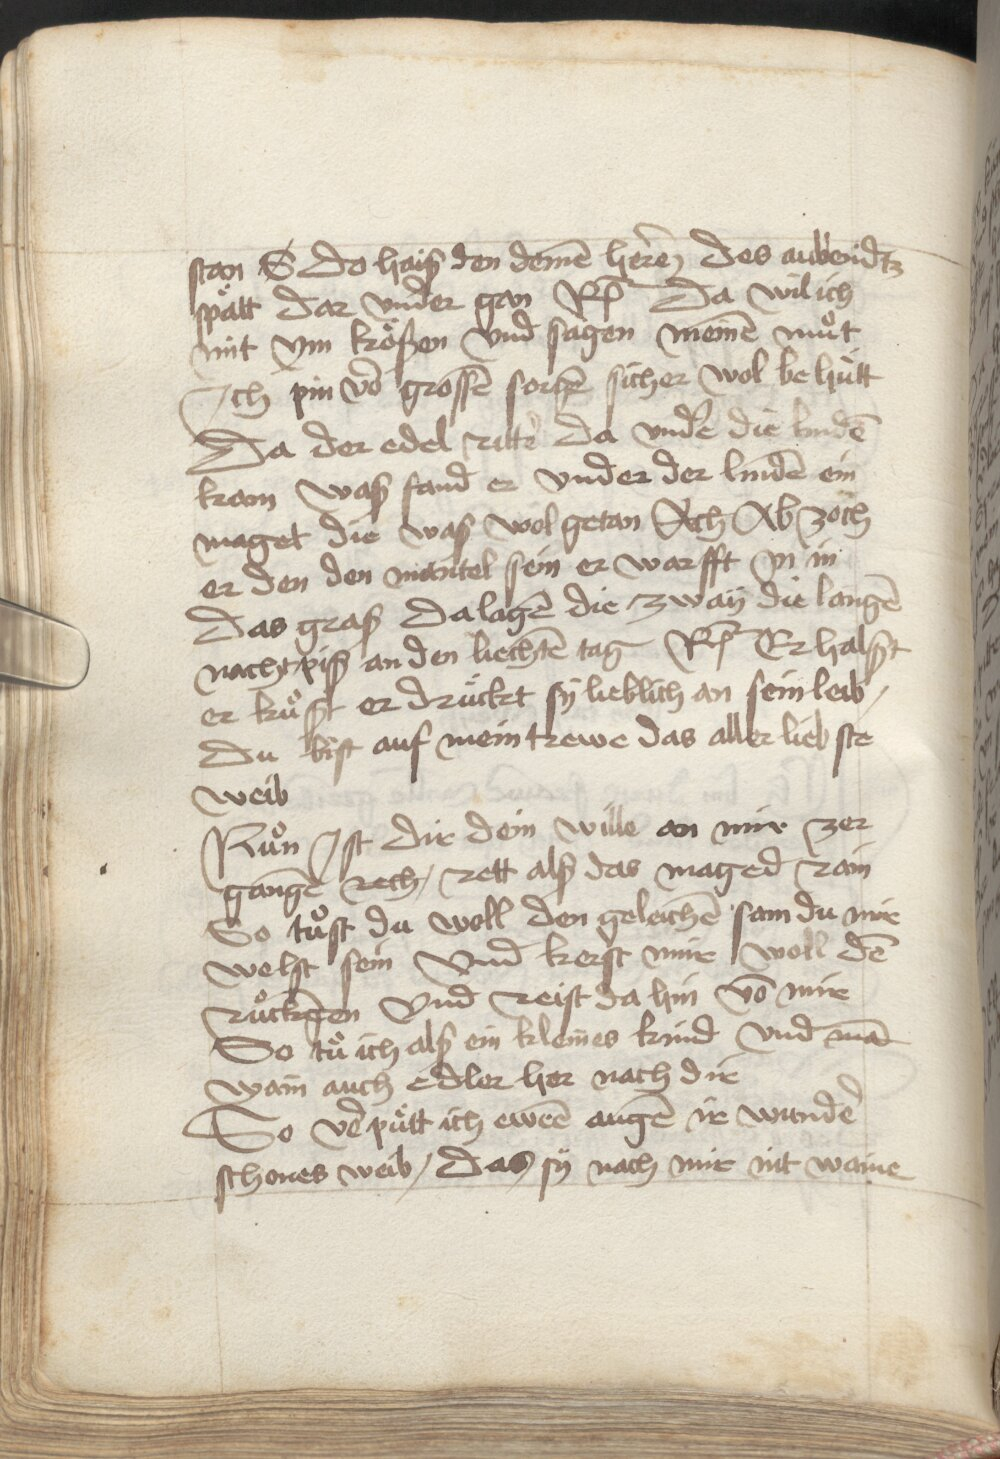 stan S Do haiß den deinē herēn des aubendtz
spått dar vnder gan Rp̄ Da wil ich
mit ym kößen vnd sagen meinē můt
Ich pin vō grossē sorgē sicher wol be hůtt
Da der edel ritter Da vnder die lindē
kam waß fand er vnder der lindē ein
maget die waß wol getan Ach Ab zoch
er den den mantel sein er warfft yn in
Das graß Da lagē die zway die langē
nacht piß an den liechtē tag Rp̄ Er halßt
er kůßt er drůckt sy lieblich an sein leib /
Du bist auf mein trewe das aller lieb ste
weib
Nůn Ist dir dein wille an mir zer
gangē rech / rett alß das maged rain
So tůst du woll den geleichē sam du mir
welst sein Vnd kerst mir woll dē
růcken Vnd reist da hin vō mir
So tů ich alß ein kleines kind vnd
wain auch edler her nach dir
So vēpůtt ich ewrē augē ir wunder
schones weib / Das sy nach mir nit waine